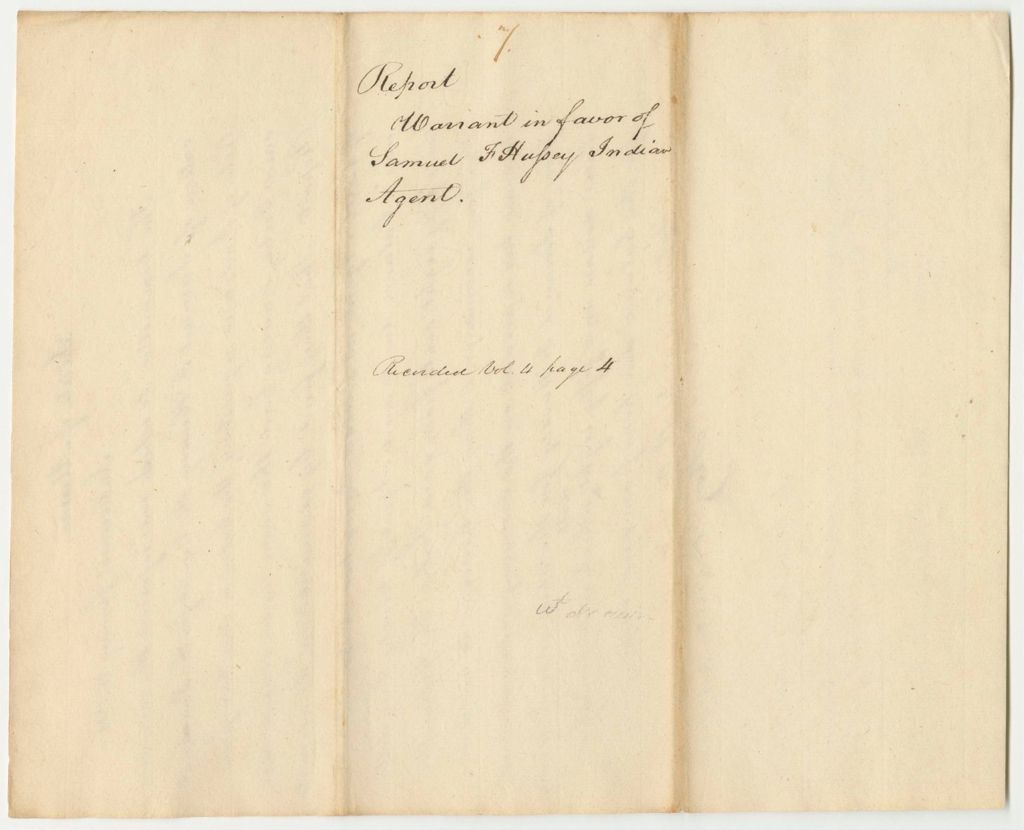 7.
Report
Warrant in favor of
Samuel F Hussey Indian
Agent.
Recorded Vol. 4 page 4
Wt drawn